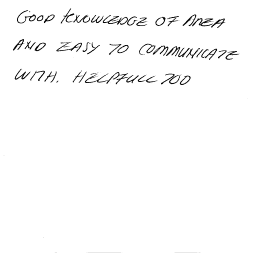 GOOD KNOWLEDGE OF AREA
AND EASY TO COMMUNICATE
WITH. HELPFULL TOO